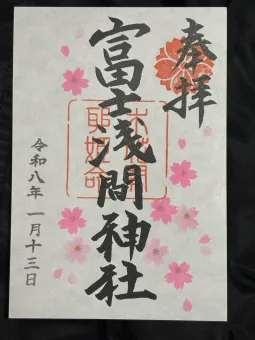 奉拝
富士浅間神社
木花開
耶姫命
令和八年一月十三日